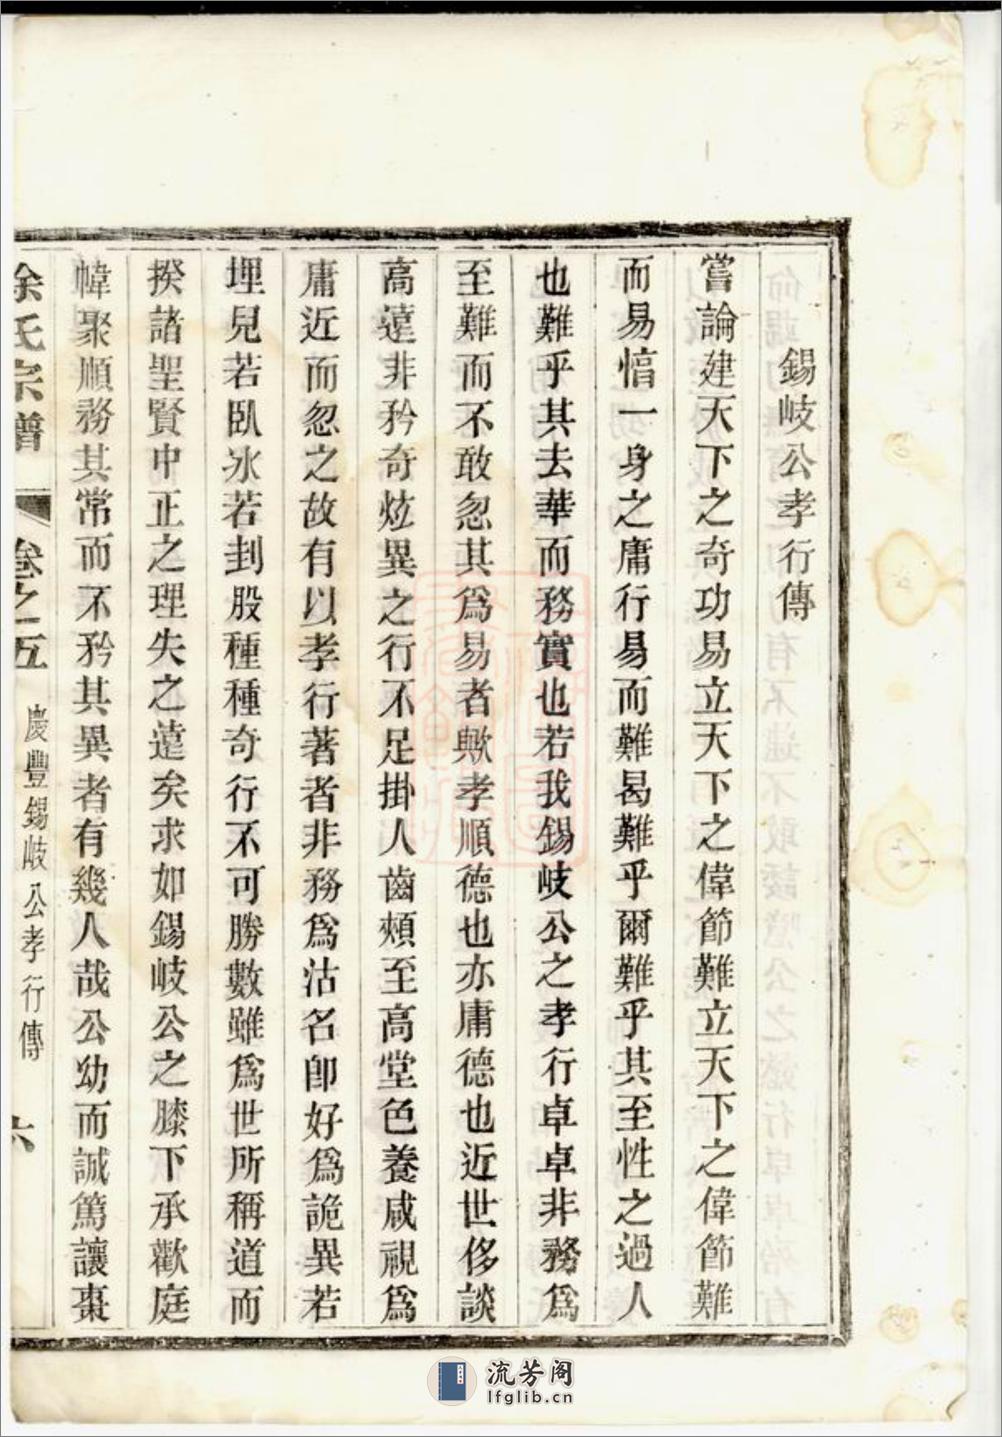 錫岐公孝行傳
嘗論建天下之奇功易立天下之偉節難立天下之偉節難
而易愔一身之庸行易而難曷難乎爾難乎其至性之過人
也難乎其去華而務實也若我錫岐公之孝行卓卓非務爲
至難而不敢忽其爲易者歟孝順德也亦庸德也近世侈談
高遠非矜奇炫異之行不足掛人齒頰至高堂色養咸視爲
庸近而忽之故有以孝行著者非務爲沽名卽好爲詭異若
埋兒若臥冰若刲股種種奇行不可勝數雖爲世所稱道而
揆諸聖賢中正之理失之遠矣求如錫岐公之膝下承歡庭
幃聚順務其常而不矜其異者有幾人哉公幼而誠篤讓棗
余氏宗譜 卷之五 慶豐錫岐公孝行傳 六
流芳阁
lfglib.cn